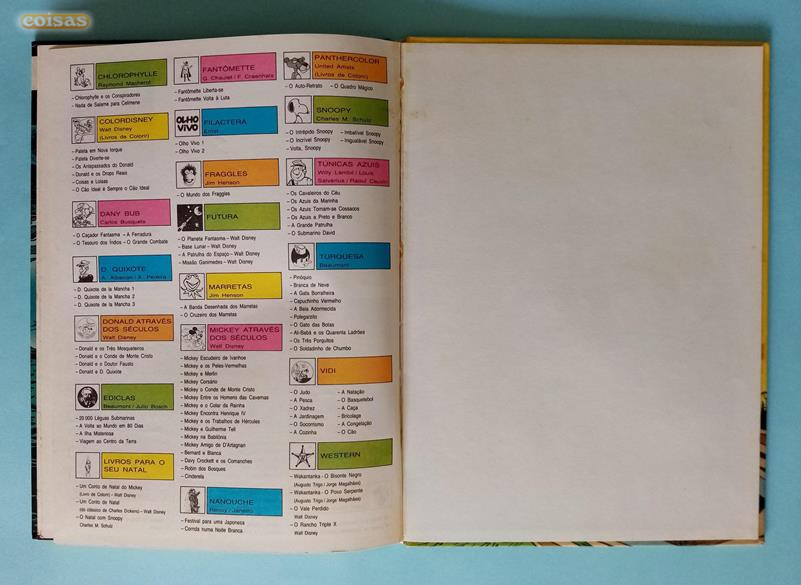 coisas
CHLOROPHYLLE
Raymond Macherot
– Chlorophylle e os Conspiradores
– Nada de Salame para Celimene
COLORDISNEY
Walt Disney
(Livros de Colorir)
– Pateta em Nova Iorque
– Pateta Diverte-se
– Os Antepassados do Donald
– Donald e os Drops Reais
– Coisas e Loisas
– O Cão Ideal é Sempre o Cão Ideal
DANY BUB
Carlos Busquets
– O Caçador Fantasma – A Ferradura
– O Tesouro dos Índios – O Grande Combate
D. QUIXOTE
A. Albarran / A. Pereira
– D. Quixote de la Mancha 1
– D. Quixote de la Mancha 2
– D. Quixote de la Mancha 3
DONALD ATRAVÉS
DOS SÉCULOS
Walt Disney
– Donald e os Três Mosqueteiros
– Donald e o Conde de Monte Cristo
– Donald e o Doutor Fausto
– Donald e D. Quixote
EDICLAS
Beaumont / Julio Bosch
– 20 000 Léguas Submarinas
– A Volta ao Mundo em 80 Dias
– A Ilha Misteriosa
– Viagem ao Centro da Terra
LIVROS PARA O
SEU NATAL
– Um Conto de Natal do Mickey
(Livro de Colorir) – Walt Disney
– Um Conto de Natal
(do clássico de Charles Dickens) – Walt Disney
– O Natal com Snoopy
Charles M. Schulz
FANTÔMETTE
G. Chaulet / F. Craenhals
– Fantômette Liberta-se
– Fantômette Volta à Luta
OLHO
VIVO
FILACTERA
Ernst
– Olho Vivo 1
– Olho Vivo 2
FRAGGLES
Jim Henson
– O Mundo dos Fraggles
FUTURA
– O Planeta Fantasma – Walt Disney
– Base Lunar – Walt Disney
– A Patrulha do Espaço – Walt Disney
– Missão Ganimedes – Walt Disney
MARRETAS
Jim Henson
– A Banda Desenhada dos Marretas
– O Cruzeiro dos Marretas
MICKEY ATRAVÉS
DOS SÉCULOS
Walt Disney
– Mickey Escudeiro de Ivanhoe
– Mickey e os Peles-Vermelhas
– Mickey e Merlin
– Mickey Corsário
– Mickey o Conde de Monte Cristo
– Mickey Entre os Homens das Cavernas
– Mickey e o Colar da Rainha
– Mickey Encontra Henrique IV
– Mickey e os Trabalhos de Hércules
– Mickey e Guilherme Tell
– Mickey na Babilónia
– Mickey Amigo de D'Artagnan
– Bernard e Bianca
– Davy Crockett e os Comanches
– Robin dos Bosques
– Cinderela
NANOUCHE
Renoy / Janeiro
– Festival para uma Japonesa
– Corrida numa Noite Branca
PANTHERCOLOR
United Artists
(Livros de Colorir)
– O Auto-Retrato – O Quadro Mágico
SNOOPY
Charles M. Schulz
– O Intrépido Snoopy – Imbatível Snoopy
– O Incrível Snoopy – Inigualável Snoopy
– Volta, Snoopy
TÚNICAS AZUIS
Willy Lambil / Louis
Salvérius / Raoul Cauvin
– Os Cavaleiros do Céu
– Os Azuis da Marinha
– Os Azuis Tornam-se Cossacos
– Os Azuis a Preto e Branco
– A Grande Patrulha
– O Submarino David
TURQUESA
Beaumont
– Pinóquio
– Branca de Neve
– A Gata Borralheira
– Capuchinho Vermelho
– A Bela Adormecida
– Polegarzito
– O Gato das Botas
– Ali-Babá e os Quarenta Ladrões
– Os Três Porquitos
– O Soldadinho de Chumbo
VIDI
– O Judo – A Natação
– A Pesca – O Basquetebol
– O Xadrez – A Caça
– A Jardinagem – Bricolage
– O Socorrismo – A Congelação
– A Cozinha – O Cão
WESTERN
– Wakantanka - O Bisonte Negro
(Augusto Trigo / Jorge Magalhães)
– Wakantanka - O Povo Serpente
(Augusto Trigo / Jorge Magalhães)
– O Vale Perdido
Walt Disney
– O Rancho Triple X
Walt Disney